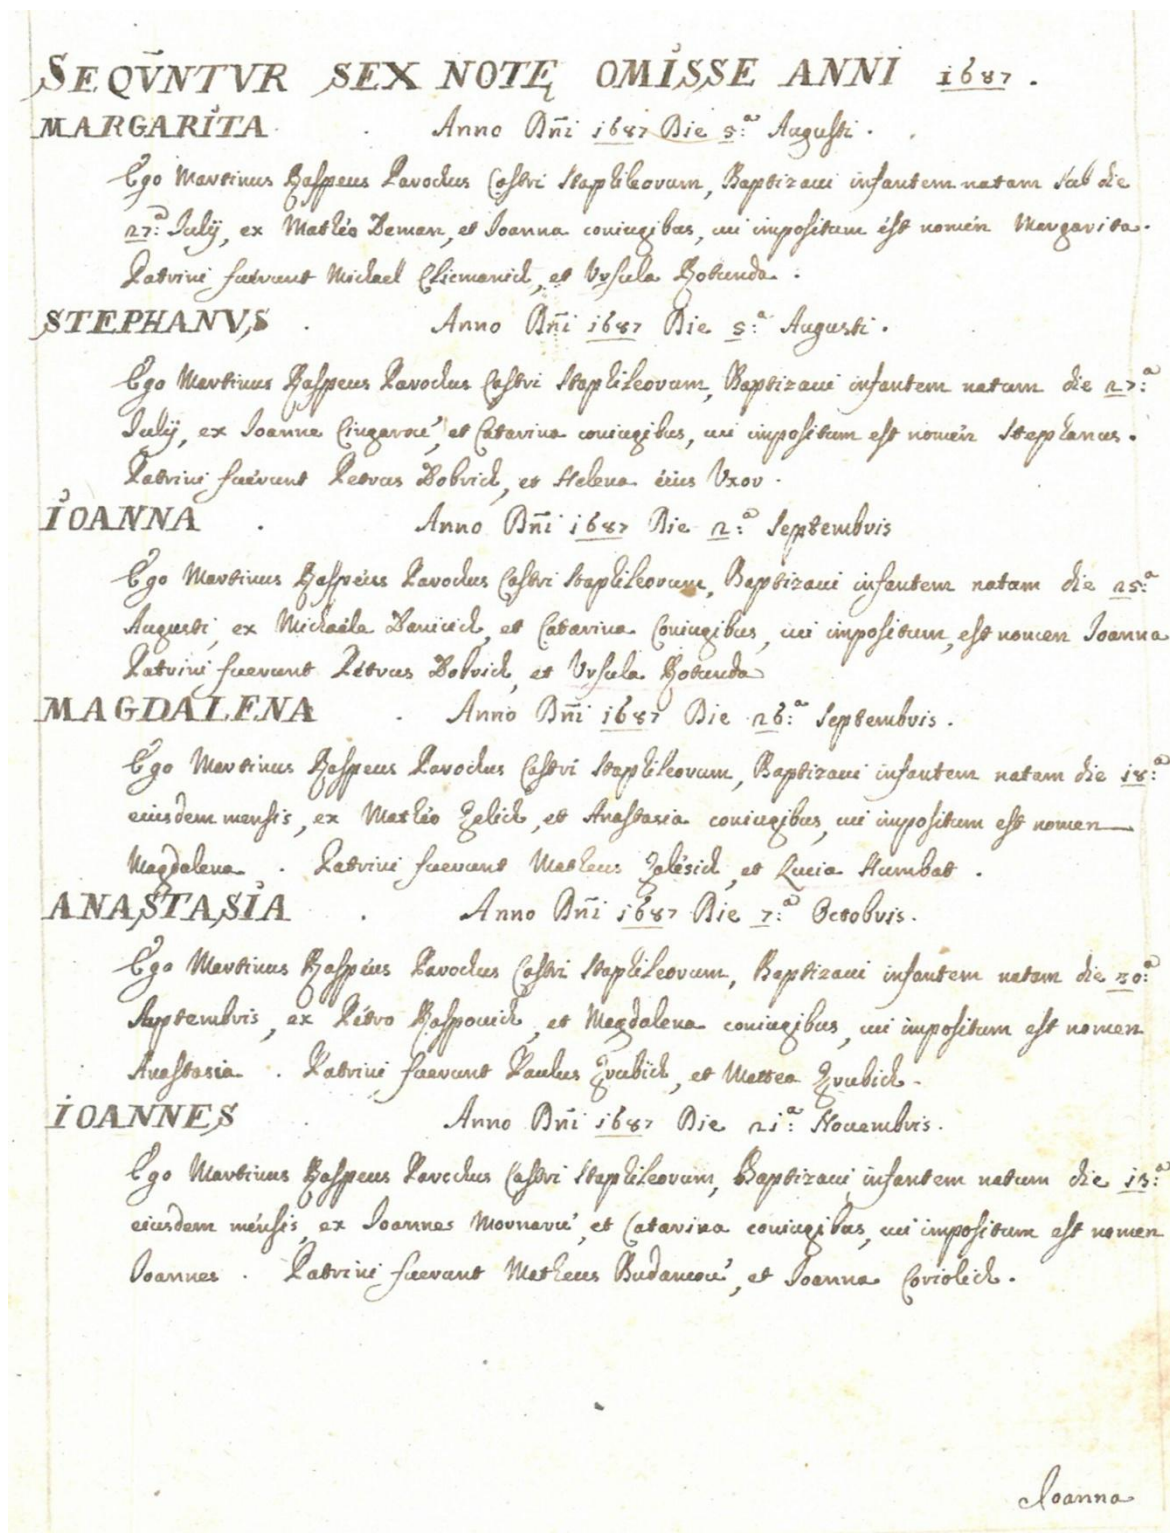 SEQV̄NTVR SEX NOTĘ OMISSE ANNI 1687.
MARGARITA. Anno Dn̄i 1687 Die 5:ª Augusti.
Ego Martinus Raspeus Parochus Castri Staphileorum, Baptizaui infantem natam sub die
27:ª Julij, ex Mathéo Deman, et Joanna coniugibus, cui impositum ést nomén Margarita.
Patrini fuérunt Michael Clicmanich, et Vrsula Rotunda.
STEPHANVS. Anno Dn̄i 1687 Die 5:ª Augusti.
Ego Martinus Raspeus Parochus Castri Staphileorum, Baptizaui infantem natum die 27:ª
Julij, ex Joanne Cingaroú, et Catarina coniugibus, cui impositum est nomén Stephanus.
Patrini fuérunt Petrus Dobrich, et Helena éius Vxor.
IOANNA. Anno Dn̄i 1687 Die 2:ª Septembris
Ego Martinus Raspéus Parochus Castri Staphileorum, Baptizaui infantem natam die 25:ª
Augusti, ex Michaéle Danicich, et Catarina Coniugibus, cui impositum, est nomen Joanna
Patrini fuerunt Pétrus Dobrich, et Vrsula Rotunda
MAGDALENA. Anno Dn̄i 1687 Die 26:ª Septembris.
Ego Martinus Raspeus Parochus Castri Staphileorum, Baptizaui infantem natam die 18:ª
eiusdem mensis, ex Mathéo Zelich, et Anastasia coniugibus, cui impositum est nomen
Magdalena. Patrini fuerunt Matheus Zalésich, et Lucia Humbat.
ANASTASIA. Anno Dn̄i 1687 Die 7:ª Octobris.
Ego Martinus Raspéus Parochus Castri Staphileorum, Baptizaui infantem natam die 30:ª
Septembris, ex Pétro Raspouich, et Magdalena coniugibus, cui impositum est nomen
Anastasia. Patrini fuerunt Paulus Zrubich, et Mattea Zrubich.
IOANNES. Anno Dn̄i 1687 Die 21:ª Nouembris.
Ego Martinus Raspeus Parochus Castri Staphileorum, Baptizaui infantem natum die 13:ª
eiusdem ménsis, ex Joannes Mornaru', et Catarina coniugibus, cui impositum est nomen
Joannes. Patrini fuerunt Matheus Budancou', et Joanna Coriolich.
Joanna